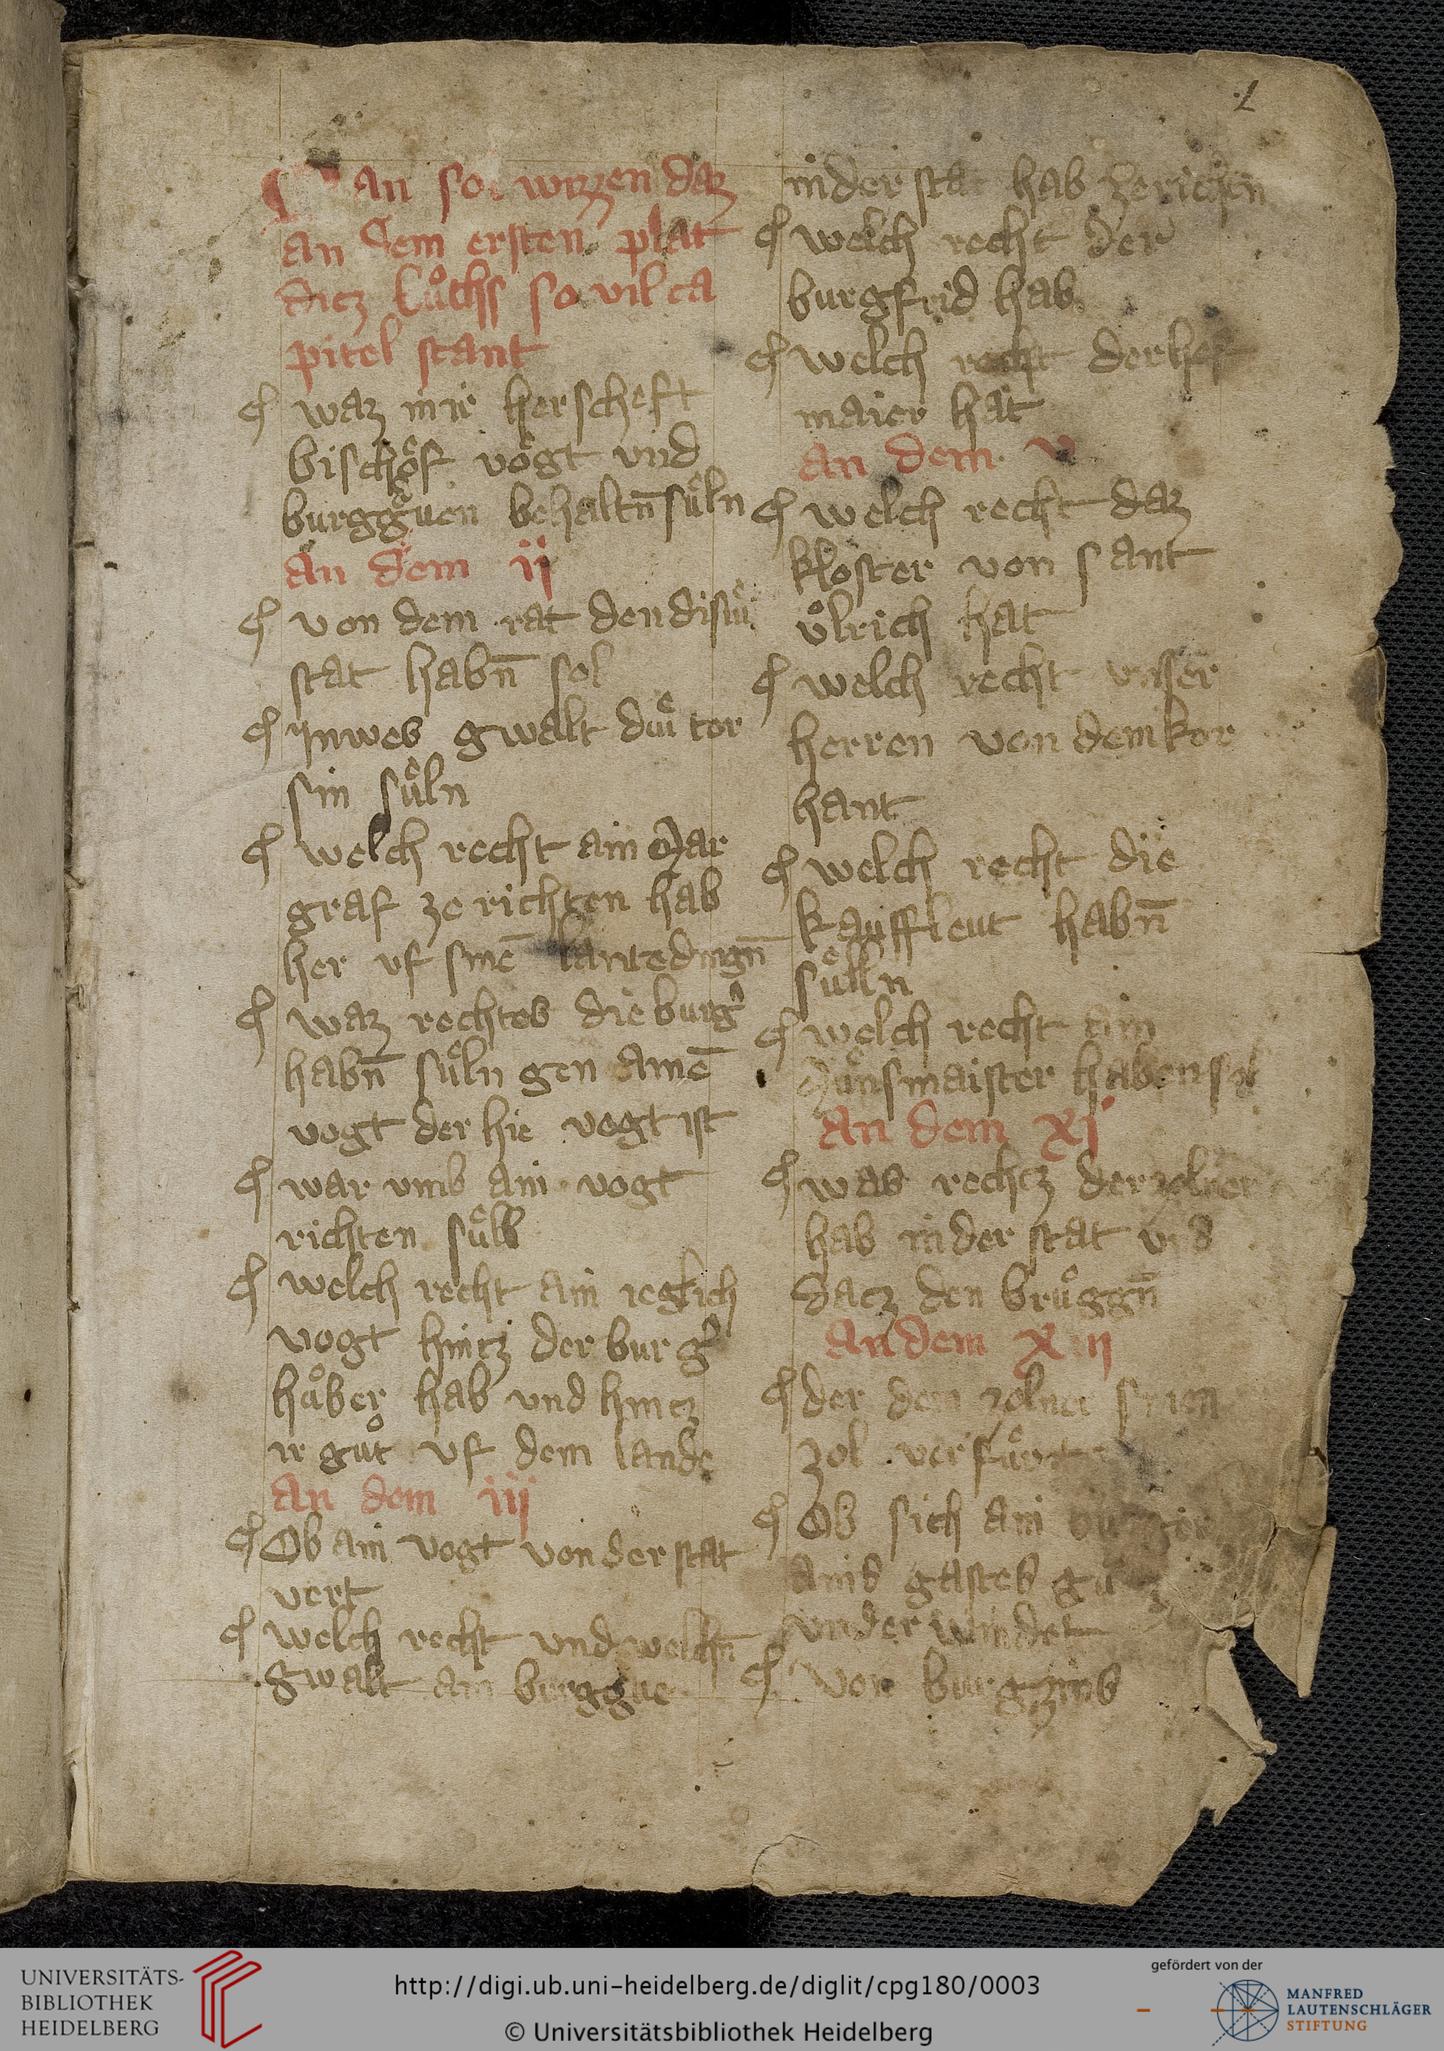 1
Man sol wizzen daz
an dem ersten plat
dicz buͦchs so vil ca
pitel stant
¶ waz mir herscheft
bischof vogt vnd
burggͣuen behaltn̄ suͤln
An dem ij
¶ von dem rat den disiuͤ
stat habn̄ sol
¶ ynwes gwalt duiͤ tor
sin suͤln
¶ welch recht ain Mar
graf ze richten hab
her vf sinē lantedingn̄
¶ waz rechtes die burg͛
habn̄ suͤln gen ainē
vogt der hie vogt ist
¶ war vmb ain vogt
richten suͤll
¶ welch recht ain ieglich
vogt hintz der burg͛
haͤber hab vnd hintz
ir guͦt vf dem lande
An dem iij
¶ Ob ain vogt von der stat
vert
¶ welch recht vnd welhn̄
gwalt ain burggͣue
in der stat hab ze richten
¶ welch recht der
burgfrid hab
¶ welch recht der
maier hat
An dem v
¶ welch recht daz
kloster von sant
uͦlrich hat
¶ welch recht vnser
herren von dem kor
hant
¶ welch recht die
kauffleut habn̄
suͤlln
¶ welch recht ain
Muͤnsmaister haben sol
An dem xj
¶ was rechtz der zolner
hab in der stat vnd
datz den bruͤggn̄
An dem xij
¶ der dem zolner sinen
zol verfuͤrt
¶ Ob sich ain burger
ains gastes guͦtz
vnder windet
¶ Von burgzins
UNIVERSITÄTS-
BIBLIOTHEK
HEIDELBERG
http://digi.ub.uni-heidelberg.de/diglit/cpg180/0003
© Universitätsbibliothek Heidelberg
gefördert von der
MANFRED
LAUTENSCHLÄGER
STIFTUNG